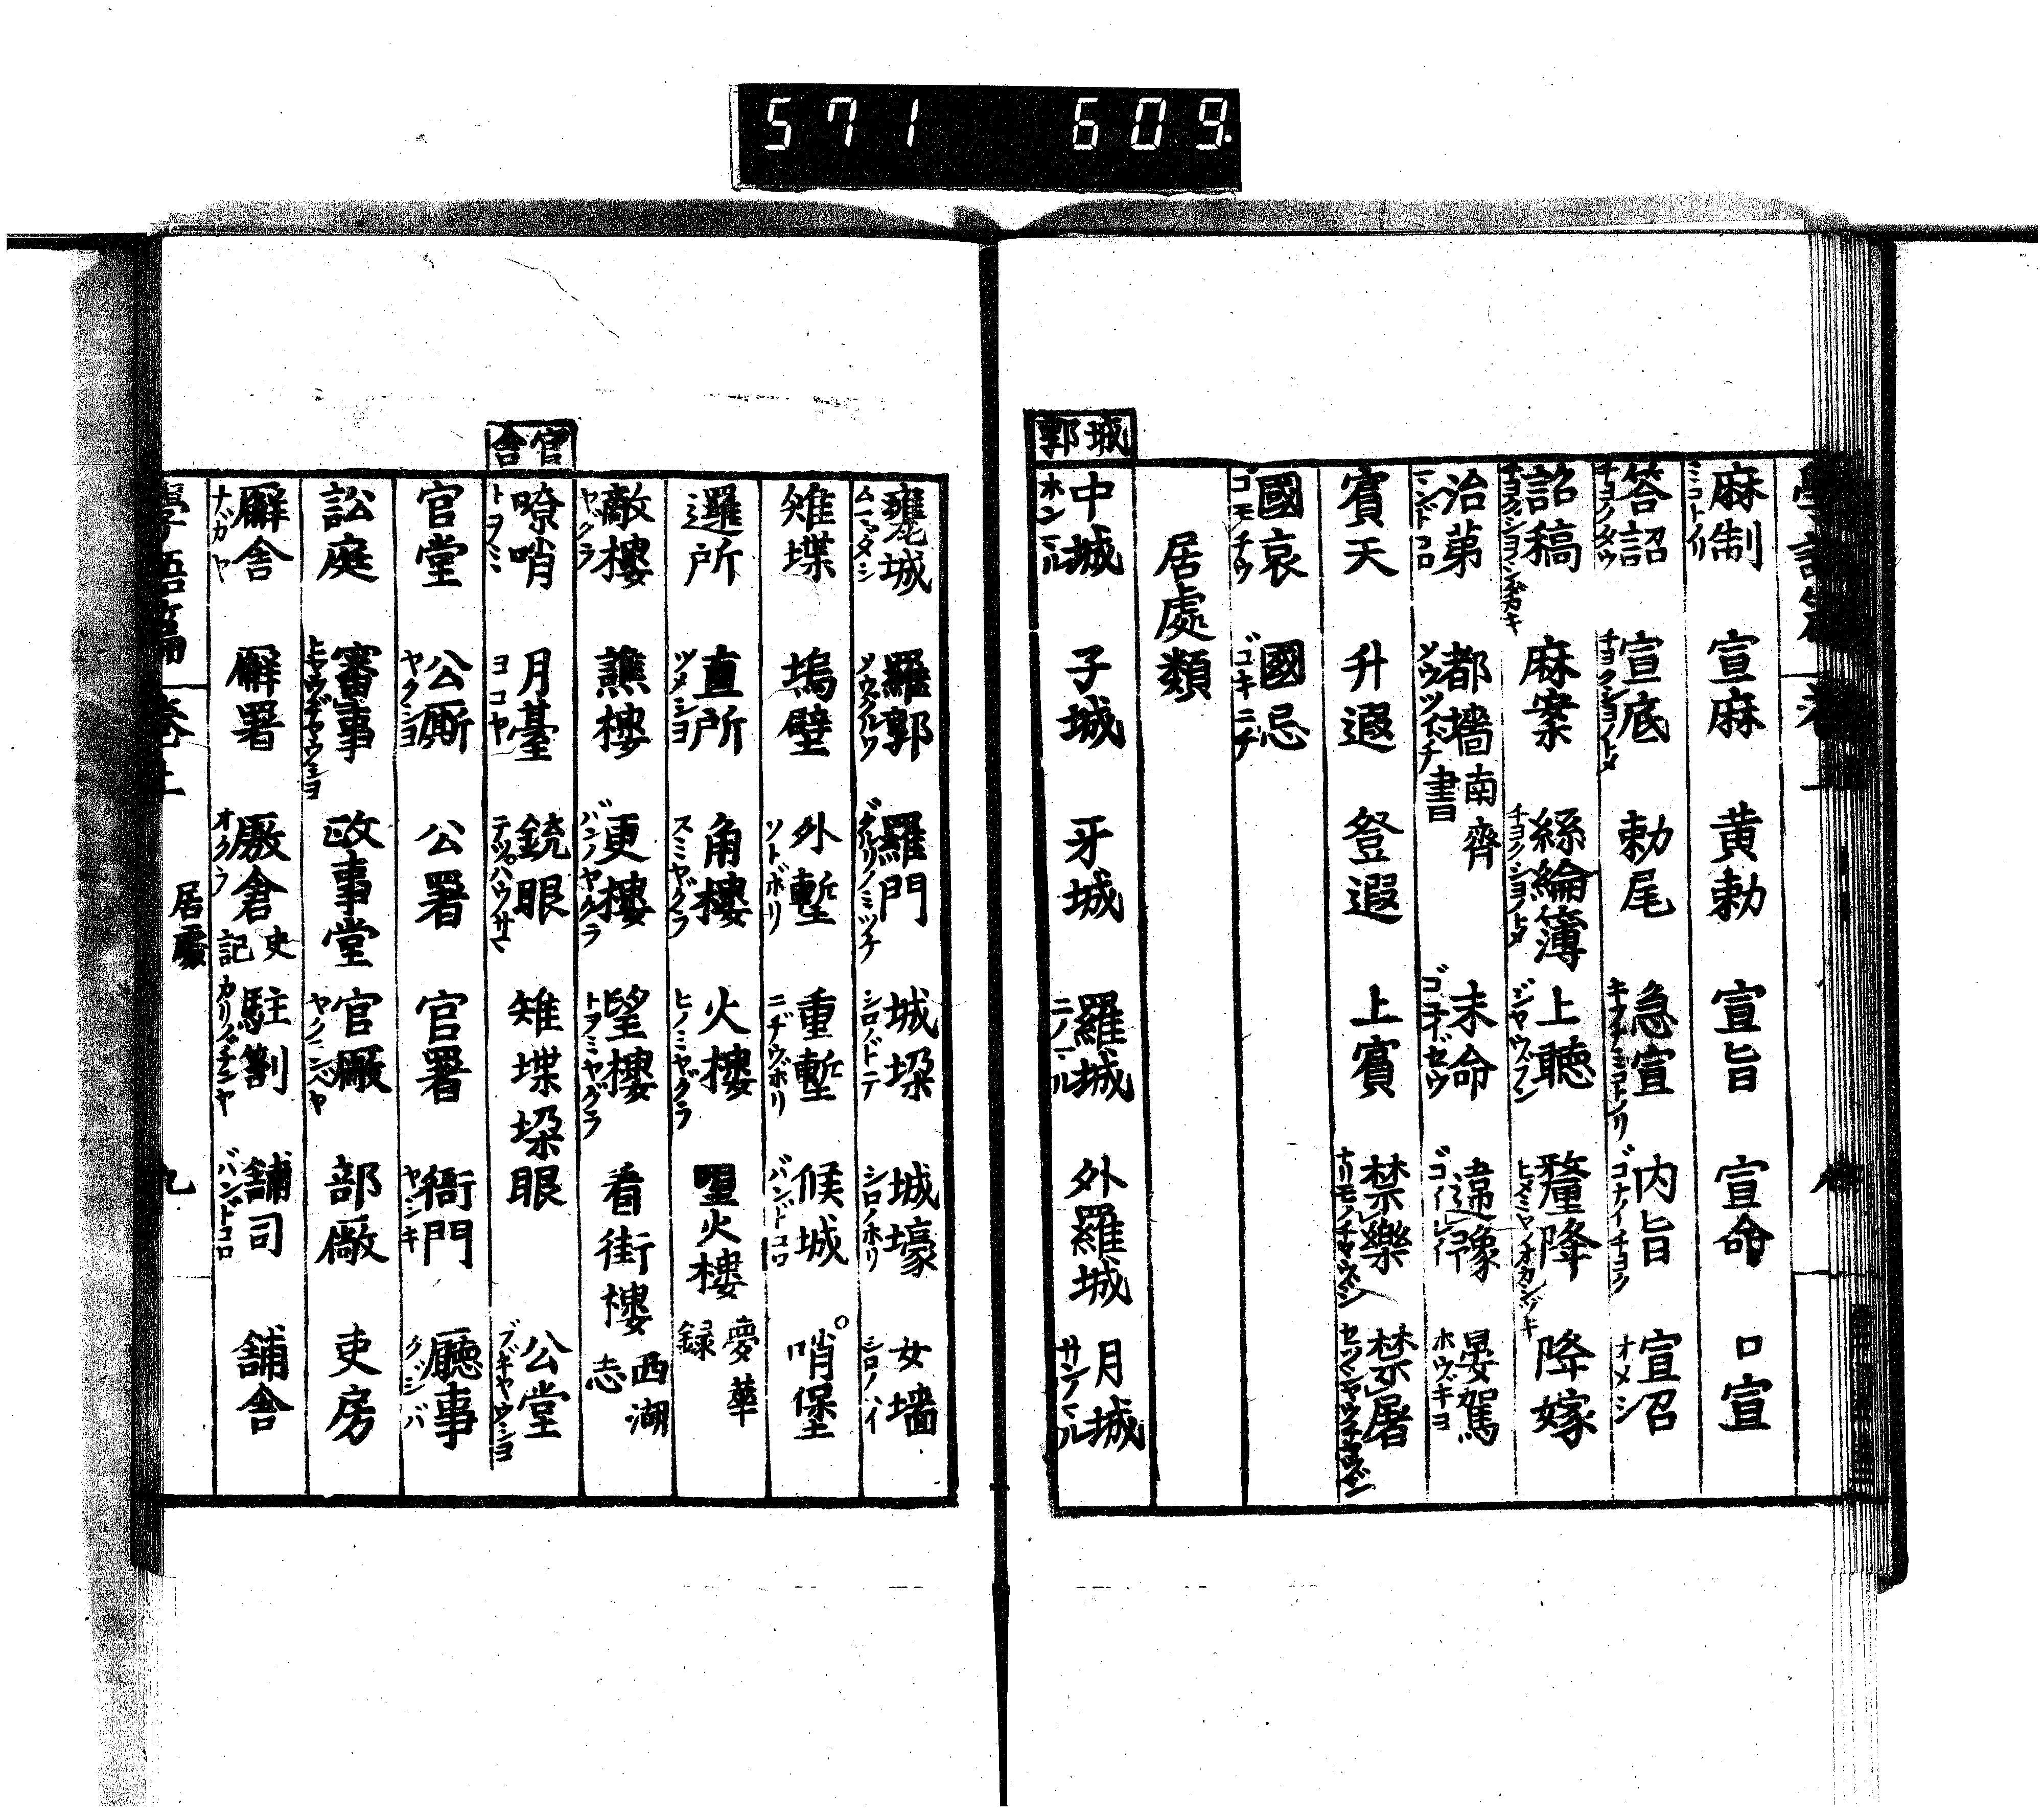 571 609
麻制 ミコトノリ 宣麻 黄勅 宣旨 宣命 口宣
答詔 チヨクタウ 宣底 チヨクシヨノトメ 勅尾 急宣 キフナミコトノリ 内旨 ゴナイチヨク 宣沼 オメシ
詔稿 チヨクシヨノシタガキ 麻案 絲綸簿 チヨクシヨノトメ 上聽 ジヤウブン 釐降 ヒメミヤノオカシヅキ 降嫁
治第 都墻 南齊書 末命 違豫 ゴイレイ 晏駕 ホウギヨ
賓天 升遐 登遐 上賓 禁樂 ナリモノチヤウジ 禁屠
國哀 ゴモチウ 國忌 ゴキニチ
居處類
城郭
中城 ホンマル 子城 牙城 羅城 ニノマル 外羅城 月城 サンノマル
甕城 ムマダシ 羅郭 ソウグルワ 羅門 グルリノミツケ 城垜 シロノドテ 城壕 シロノホリ 女墻 シロノヘイ
雉堞 塢壁 外塹 ソトボリ 重塹 ニヂウボリ 候城 バンドコロ 哨堡
邏所 直所 ツメシヨ 角樓 スミヤグラ 火樓 ヒノミヤグラ 望火樓 夢華録
敵樓 ヤグラ 譙樓 更樓 バンノヤグラ 望樓 トヲミヤグラ 看街樓 西湖志
官舎
嘹哨 トヲミ 月臺 ヨコヤ 銃眼 テツパウサマ 雉堞垜眼 公堂 ブギヤウシヨ
官堂 公廨 ヤクシヨ 公署 官署 衙門 ヤシキ 廳事 クジバ
訟庭 審事 ヒヤウヂヤウシヨ 政事堂 官廠 ヤクニンベヤ 部廠 吏房
廨舎 ナガヤ 廨署 廒倉 史記 オクラ 駐劄 舗司 バンドコロ 舗舎
學語篇 卷上 居處 九